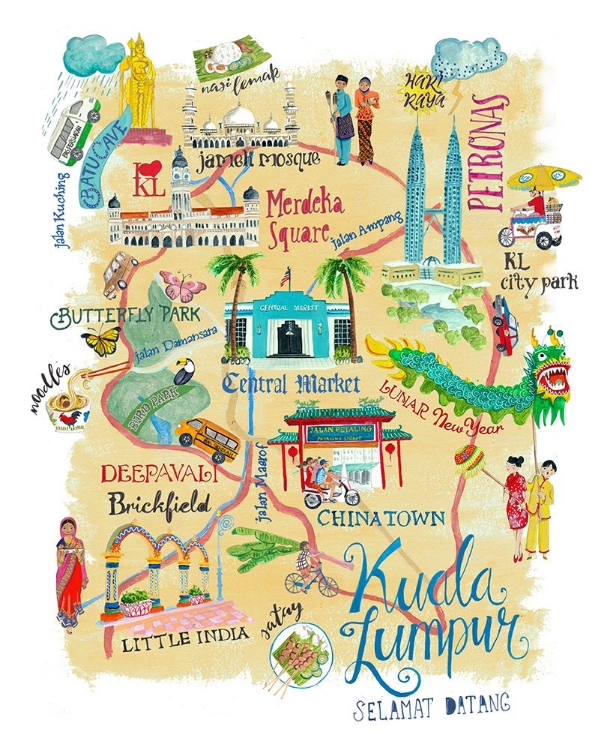 nasi lemak
HARI
RAYA
BATU CAVE
Jalan Kuching
I ♥
KL
jamek mosque
PETRONAS
Merdeka
Square
Jalan Ampang
KL
city park
BUTTERFLY PARK
Jalan Damansara
CENTRAL MARKET
Central Market
noodles
BIRD PARK
LUNAR New Year
JALAN PETALING
DEEPAVALI
Brickfield
Jalan Maarof
CHINATOWN
LITTLE INDIA
satay
Kuala
Lumpur
SELAMAT DATANG